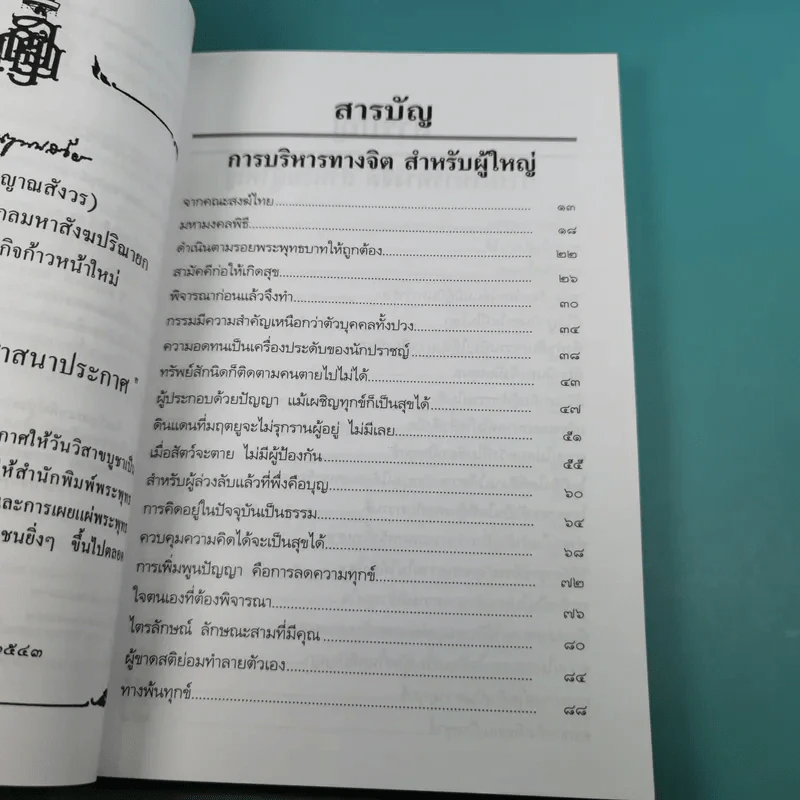 ญาณสังวร)
กลมหาสังฆปริณายก
กิจก้าวหน้าใหม่
าสนาประกาศ"
กาศให้วันวิสาขบูชาเป็น
ให้สำนักพิมพ์พระพุทธ
และการเผยแผ่พระพุทธ
ชนยิ่งๆ ขึ้นไปตลอด
๒๕๔๓
สารบัญ
การบริหารทางจิต สำหรับผู้ใหญ่
จากคณะสงฆ์ไทย ๑๓
มหามงคลพิธี ๑๘
ดำเนินตามรอยพระพุทธบาทให้ถูกต้อง ๒๒
สามัคคีก่อให้เกิดสุข ๒๖
พิจารณาก่อนแล้วจึงทำ ๓๐
กรรมมีความสำคัญเหนือกว่าตัวบุคคลทั้งปวง ๓๔
ความอดทนเป็นเครื่องประดับของนักปราชญ์ ๓๘
ทรัพย์สักนิดก็ติดตามคนตายไปไม่ได้ ๔๓
ผู้ประกอบด้วยปัญญา แม้เผชิญทุกข์ก็เป็นสุขได้ ๔๗
ดินแดนที่มฤตยูจะไม่รุกรานผู้อยู่ ไม่มีเลย ๕๑
เมื่อสัตว์จะตาย ไม่มีผู้ป้องกัน ๕๕
สำหรับผู้ล่วงลับแล้วที่พึ่งคือบุญ ๖๐
การคิดอยู่ในปัจจุบันเป็นธรรม ๖๔
ควบคุมความคิดได้จะเป็นสุขได้ ๖๘
การเพิ่มพูนปัญญา คือการลดความทุกข์ ๗๒
ใจตนเองที่ต้องพิจารณา ๗๖
ไตรลักษณ์ ลักษณะสามที่มีคุณ ๘๐
ผู้ขาดสติย่อมทำลายตัวเอง ๘๔
ทางพ้นทุกข์ ๘๘